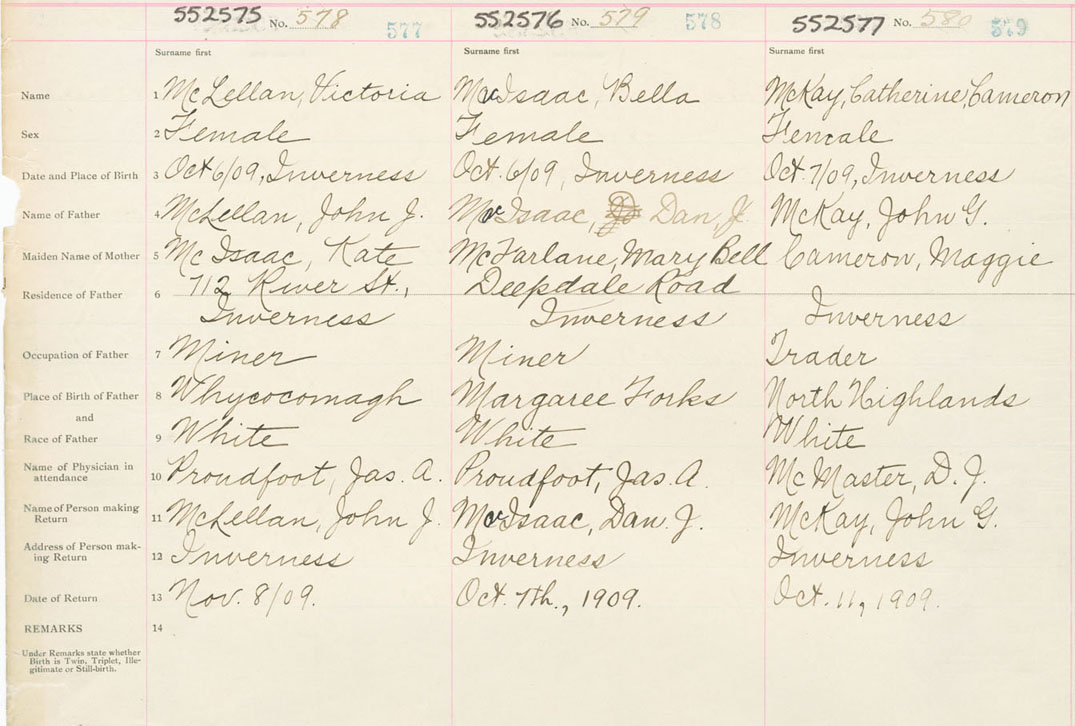 552575 No. 578 577 552576 No. 579 578 552577 No. 580 579
Surname first Surname first Surname first
Name 1 McLellan, Victoria McIsaac, Bella McKay, Catherine, Cameron
Sex 2 Female Female Female
Date and Place of Birth 3 Oct 6/09, Inverness Oct. 6/09, Inverness Oct. 7/09, Inverness
Name of Father 4 McLellan, John J. McIsaac, Dan J. McKay, John G.
Maiden Name of Mother 5 McIsaac, Kate McFarlane, Mary Bell Cameron, Maggie
Residence of Father 6 712 River St., Deepdale Road
Inverness Inverness Inverness
Occupation of Father 7 Miner Miner Trader
Place of Birth of Father 8 Whycocomagh Margaree Forks North Highlands
and
Race of Father 9 White White White
Name of Physician in
attendance 10 Proudfoot, Jas. A. Proudfoot, Jas. A. McMaster, D. J.
Name of Person making
Return 11 McLellan, John J. McIsaac, Dan. J. McKay, John G.
Address of Person mak-
ing Return 12 Inverness Inverness Inverness
Date of Return 13 Nov. 8/09. Oct. 7th., 1909. Oct. 11, 1909.
REMARKS 14
Under Remarks state whether
Birth is Twin, Triplet, Ille-
gitimate or Still-birth.